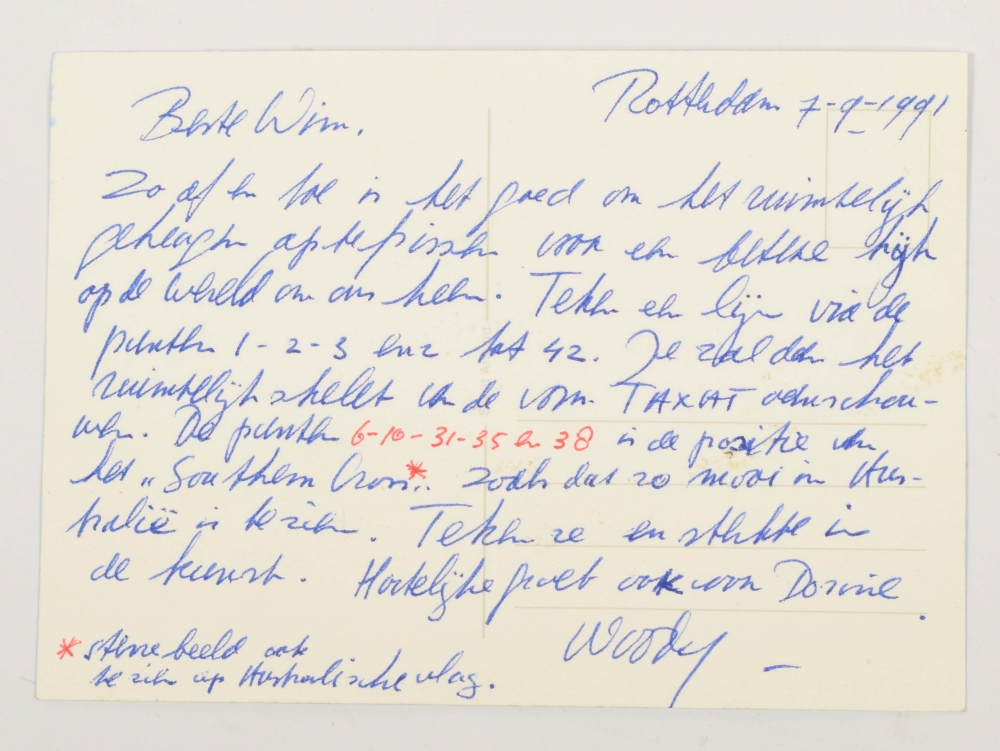 Rotterdam 7-9-1991
Beste Wim.
Zo af en toe is het goed om het ruimtelijk
geheugen op te frissen voor een betere kijk
op de wereld om ons heen. Teken een lijn via de
punten 1-2-3 enz tot 42. Je zal dan het
ruimtelijk skelet van de vorm TAXAT aanschou-
wen. De punten 6-10-31-35 en 38 in de positie van
het "Southern Cross"* zoals dat zo mooi in Aus-
tralië is te zien. Teken ze en sterkte in
de kunst. Hartelijke groet ook voor Dorine.
Woody –
* sterrebeeld ook
te zien op Australische vlag.